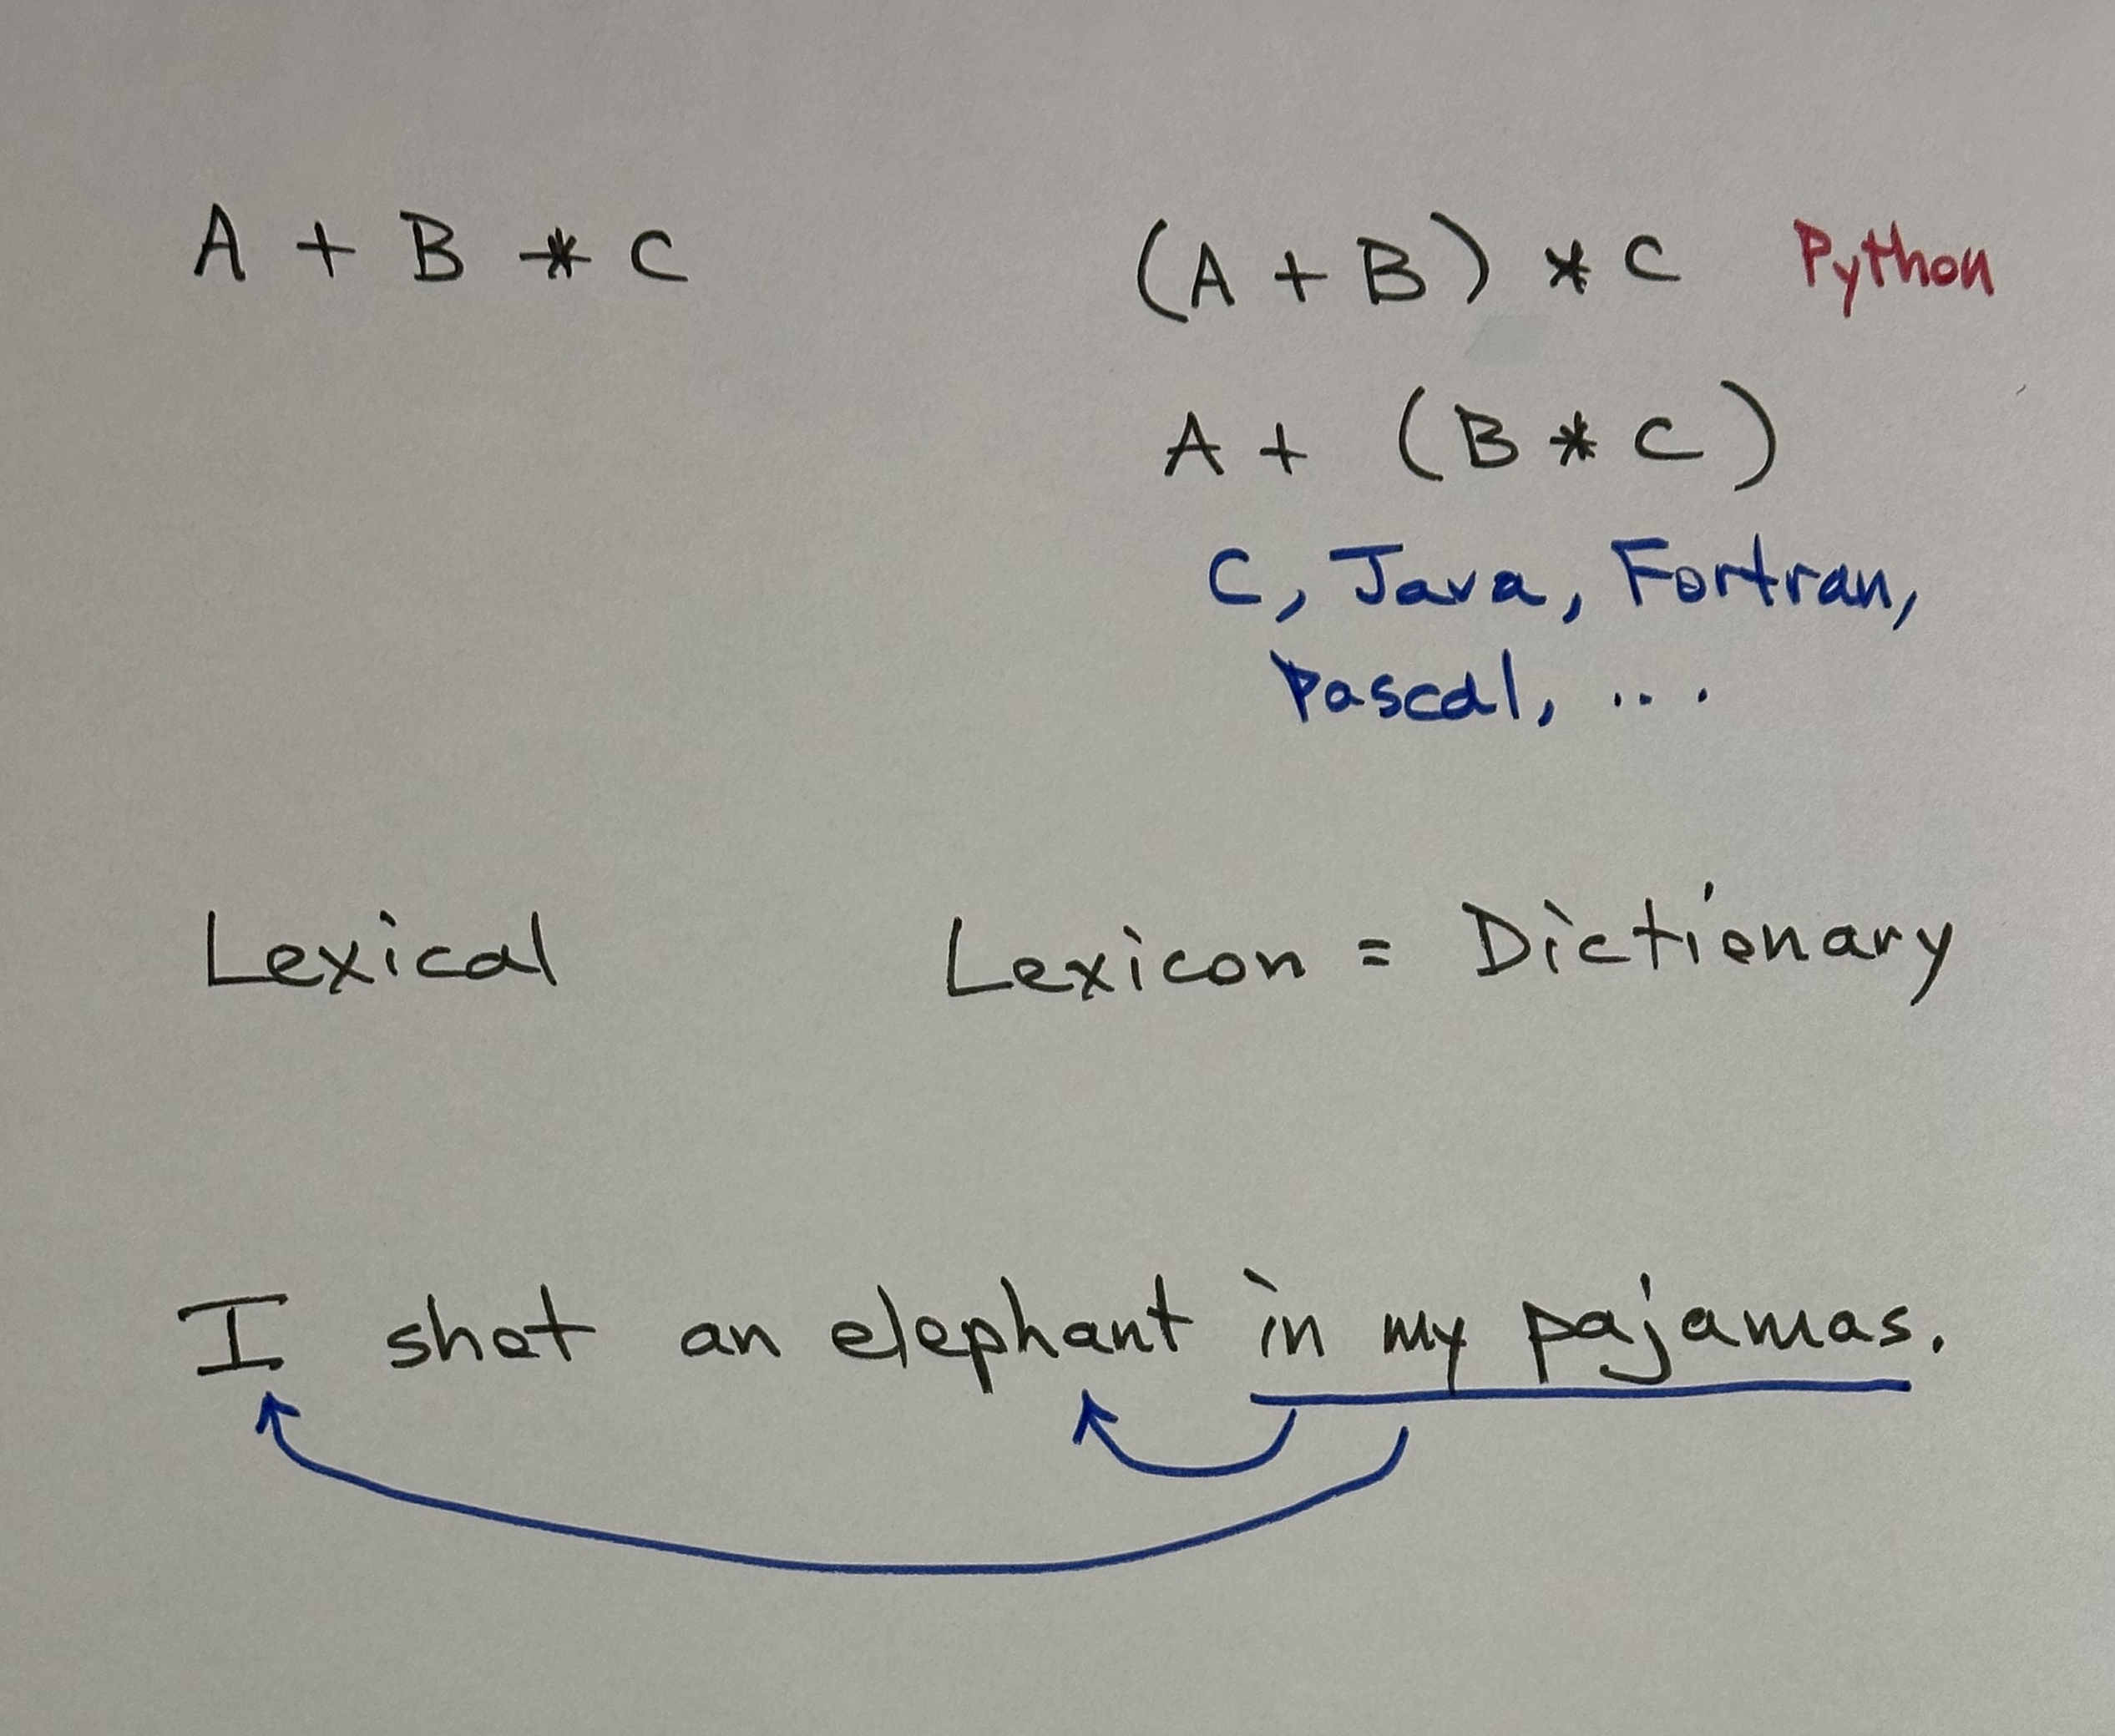 A + B * C
(A + B) * C Python
A + (B * C)
C, Java, Fortran,
Pascal, ...
Lexical Lexicon = Dictionary
I shot an elephant in my pajamas.